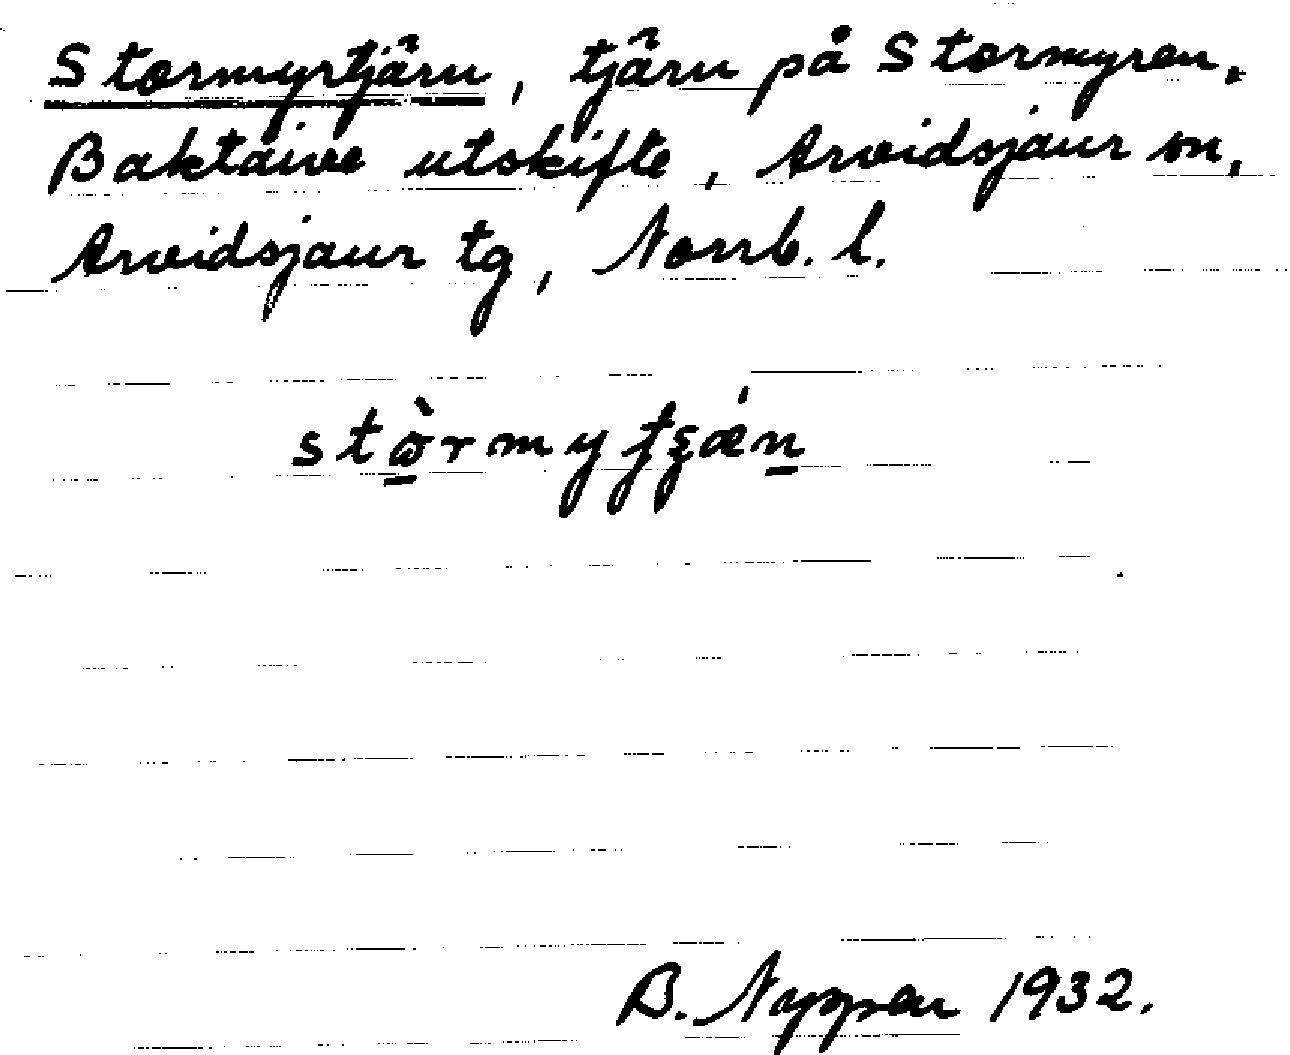 Stormyrtjärn, tjärn på Stormyren,
Baktaive utskifte, Arvidsjaur sn,
Arvidsjaur tg, Norrb. l.
1932.